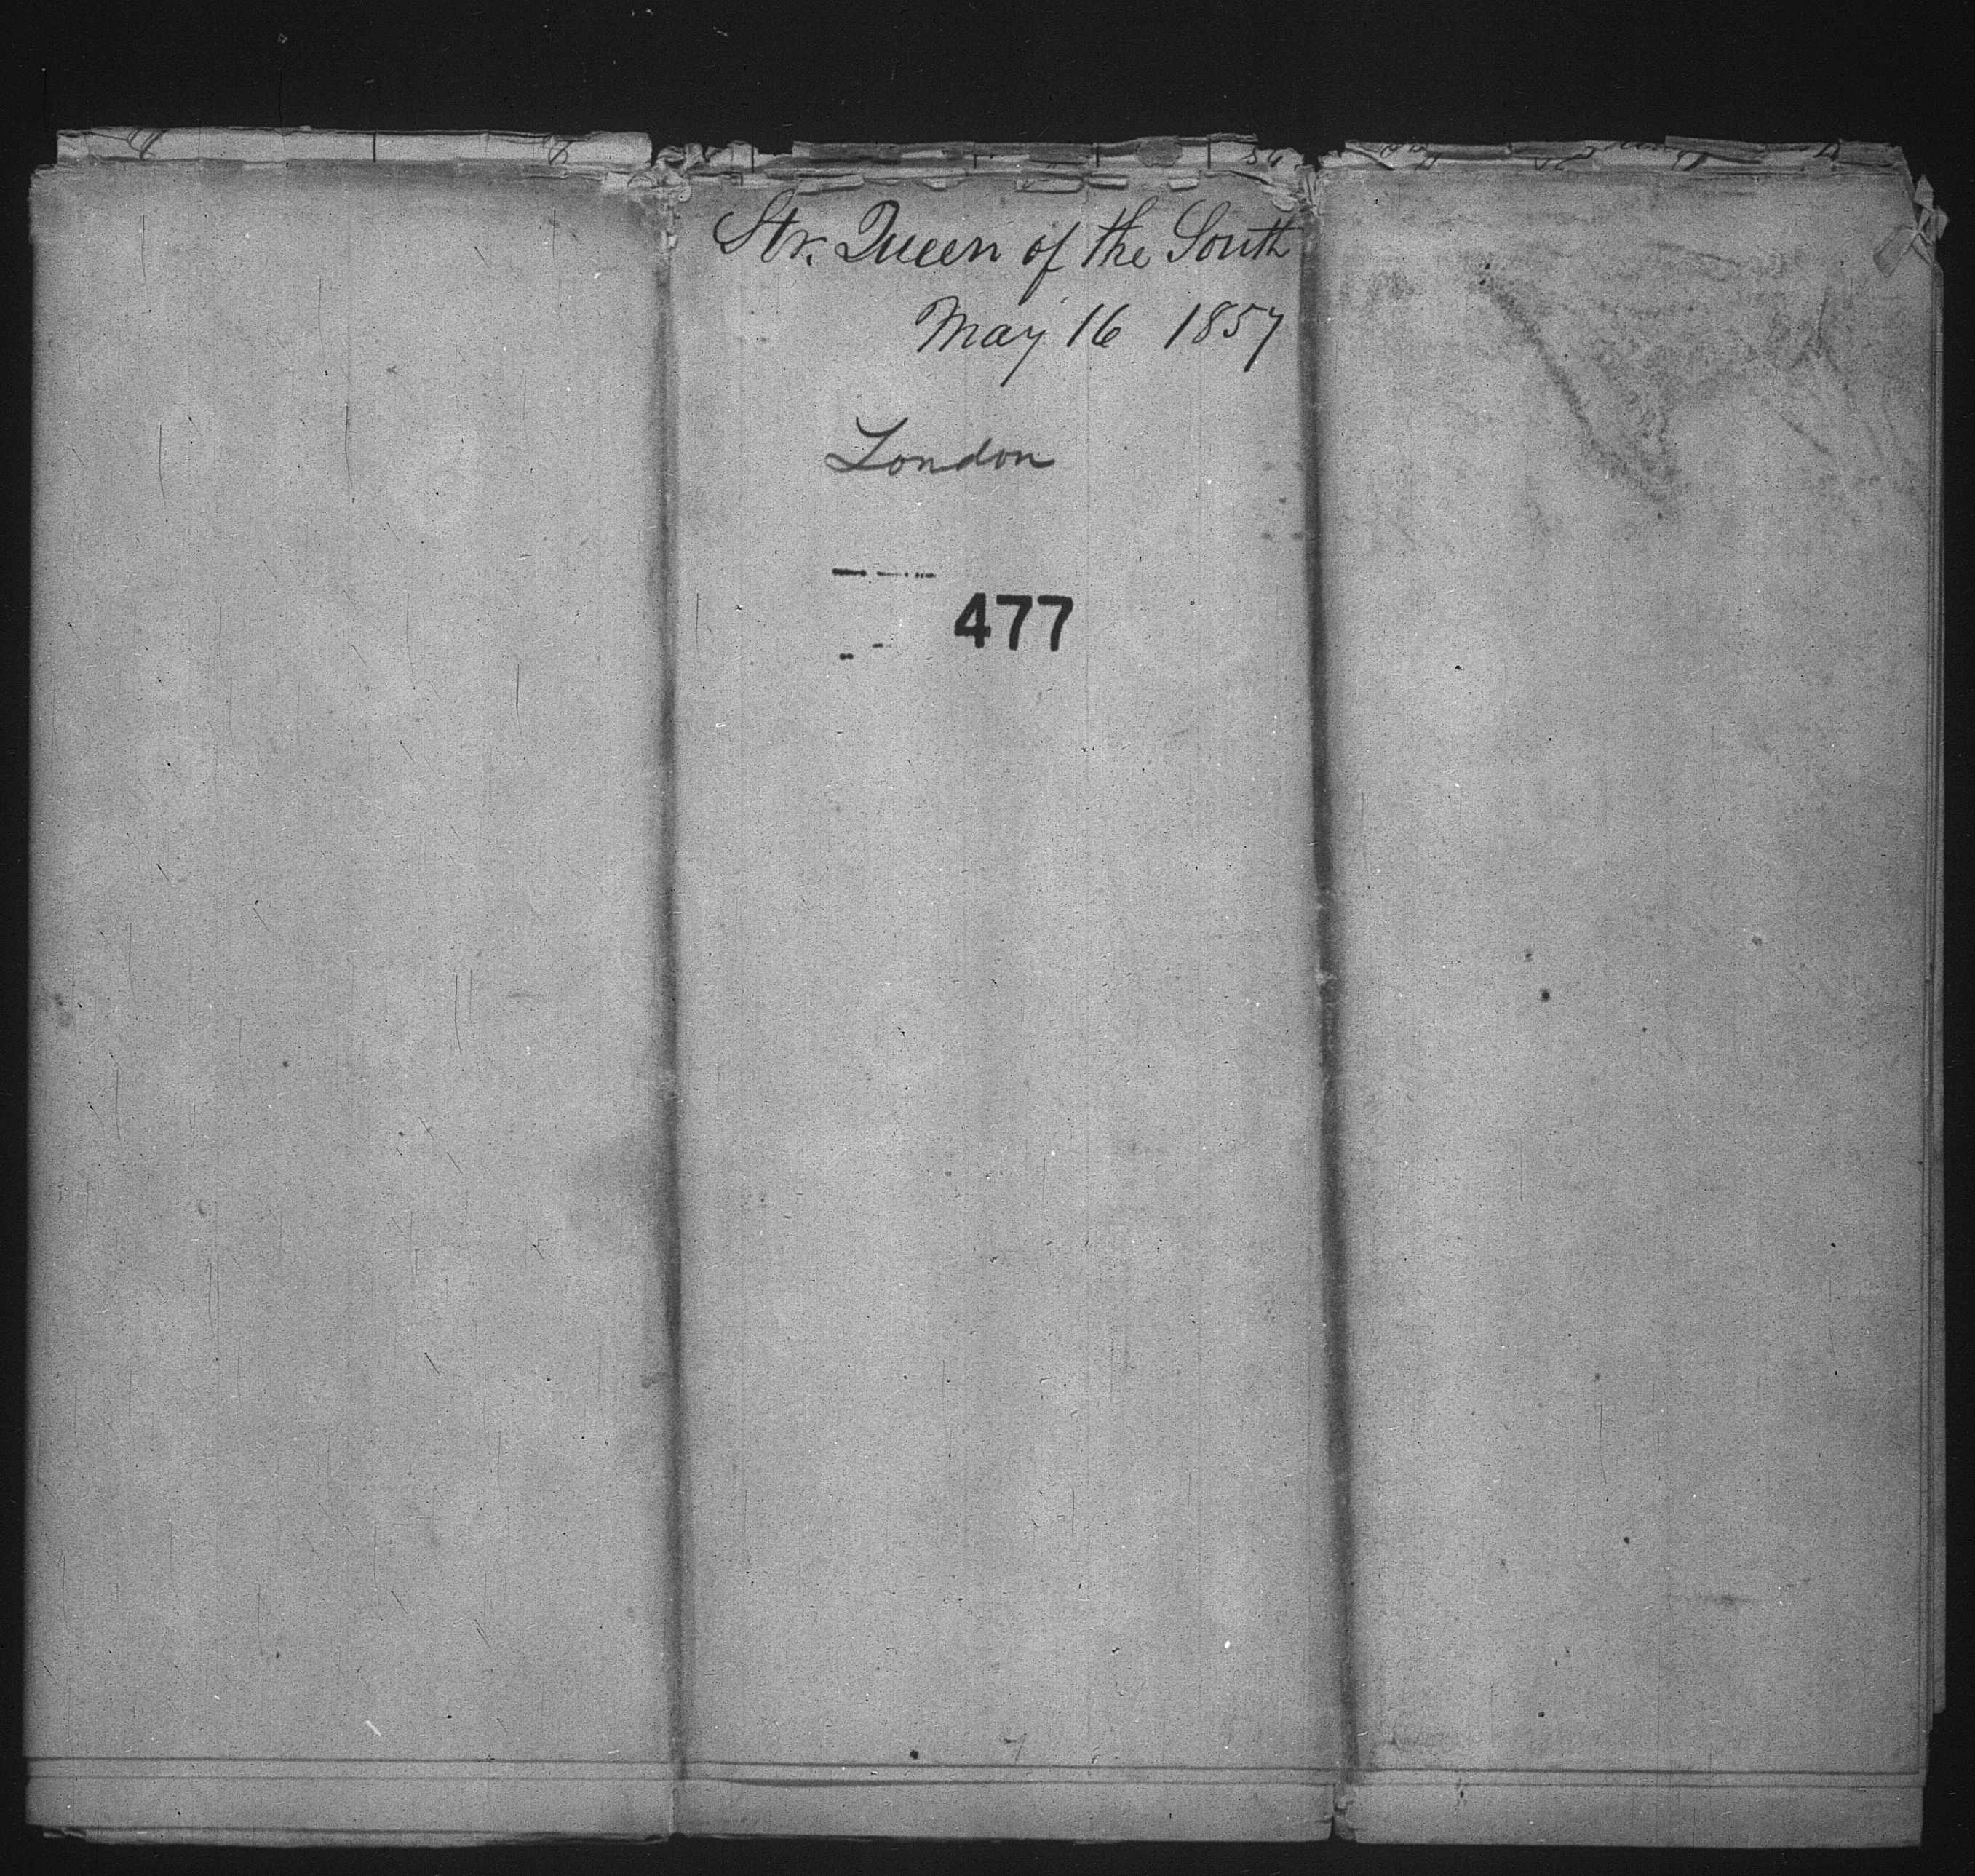 Str. Queen of the South
May 16 1857
London
477